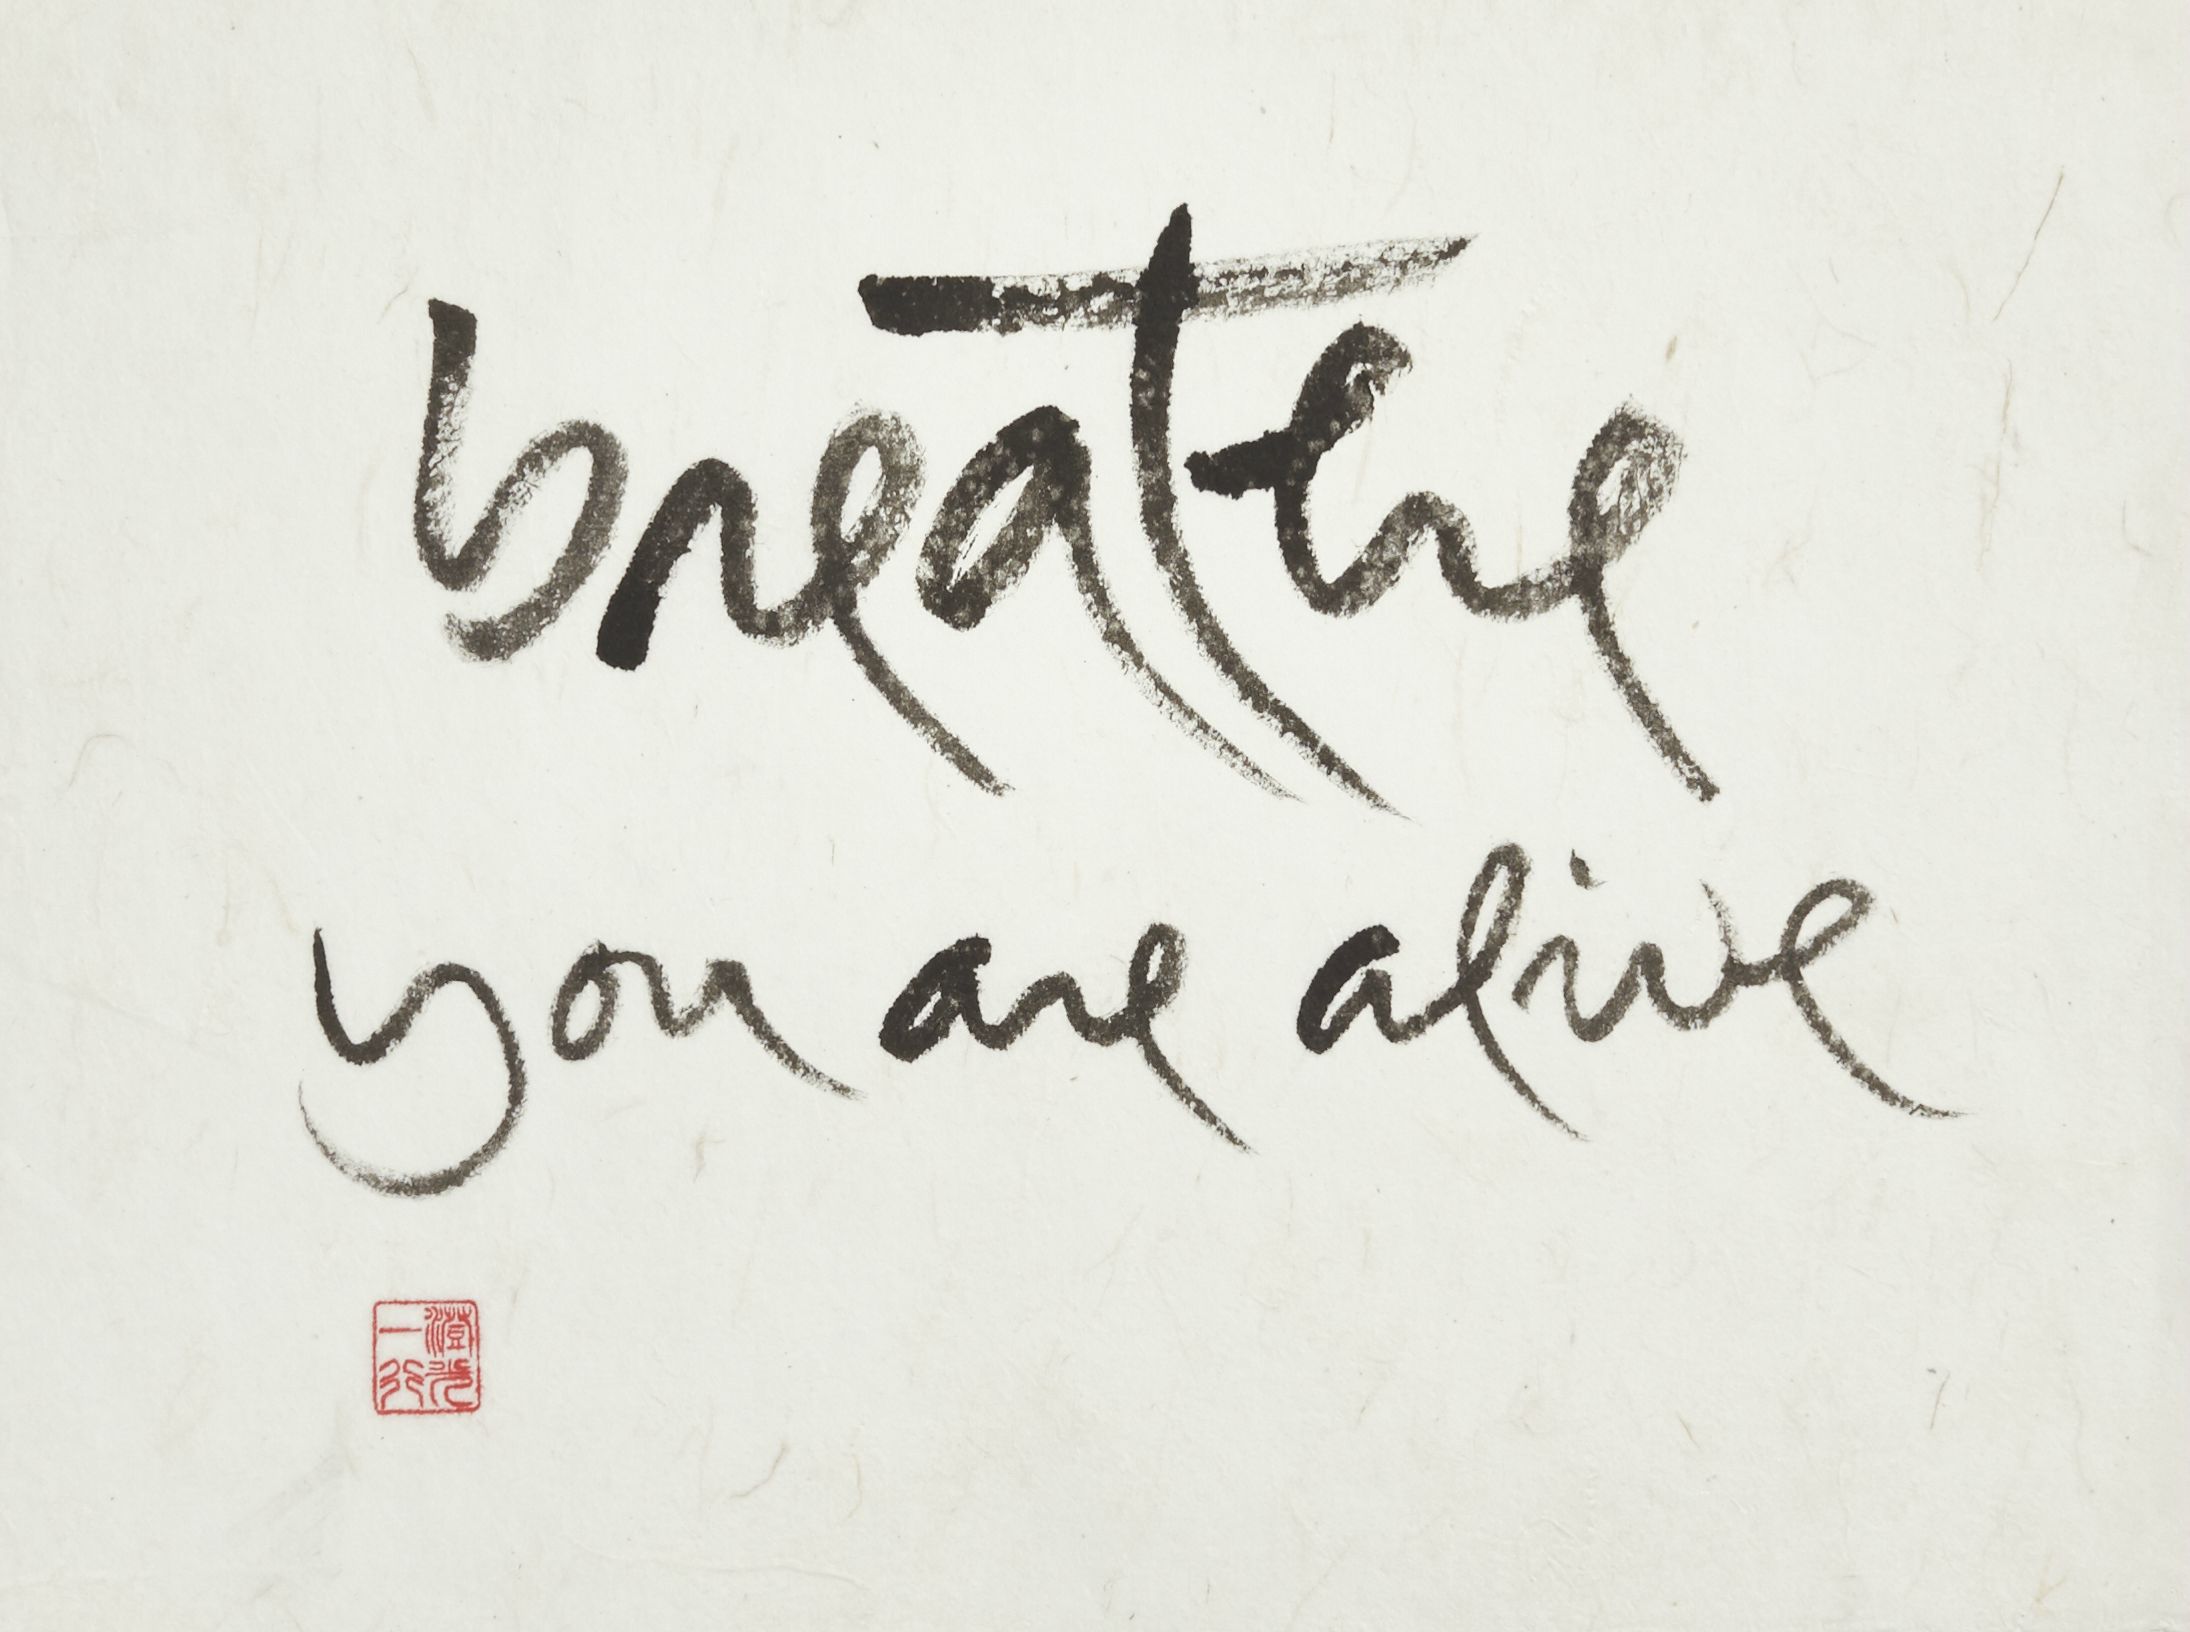 breathe
you are alive
澄光
一行